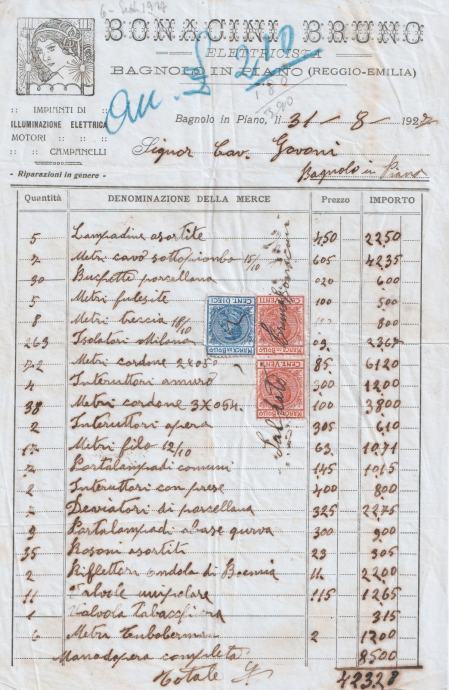 6 - Sett 1927
BONACINI BRUNO
ELETTRICISTA
BAGNOLO IN PIANO (REGGIO-EMILIA)
IMPIANTI DI
ILLUMINAZIONE ELETTRICA
MOTORI
CAMPANELLI
- Riparazioni in genere -
Bagnolo in Piano, li 31 - 8 - 1927
Signor Cav. Govoni
Bagnolo in Piano
Quantità DENOMINAZIONE DELLA MERCE Prezzo IMPORTO
5 Lampadine asortite 450 2250
7 Metri cavo sottopiombo 15/10 605 4235
30 Buffette porcellana 020 600
5 Metri 100 500
8 Metri treccia 18/10 800
263 Isolatori Milano 09 2367
72 Metri cordone 2x05 85 6120
4 Interuttori amuro 300 1200
38 Metri cordone 3x05 100 3800
2 Interuttori opera 305 610
17 Metri filo 12/10 63 1071
7 Portalampadi comuni 145 1015
2 Interuttori con prese 400 800
7 Deviatori di porcellana 325 2275
3 Portalampadi abase curva 300 900
35 Rosoni asortiti 23 805
2 Rifflettori ondola di Boemia 11 2200
11 Valvole unipolare 115 1265
1 Valvola Tabacchiera 315
6 Metri 2 1200
Manodopera completa 8500
Totale 42328
CENT. DIECI
MARCA DA BOLLO
CENT. VENTI
MARCA DA BOLLO
CENT. VENTI
MARCA DA BOLLO
Saldato
Bruno Bonacini